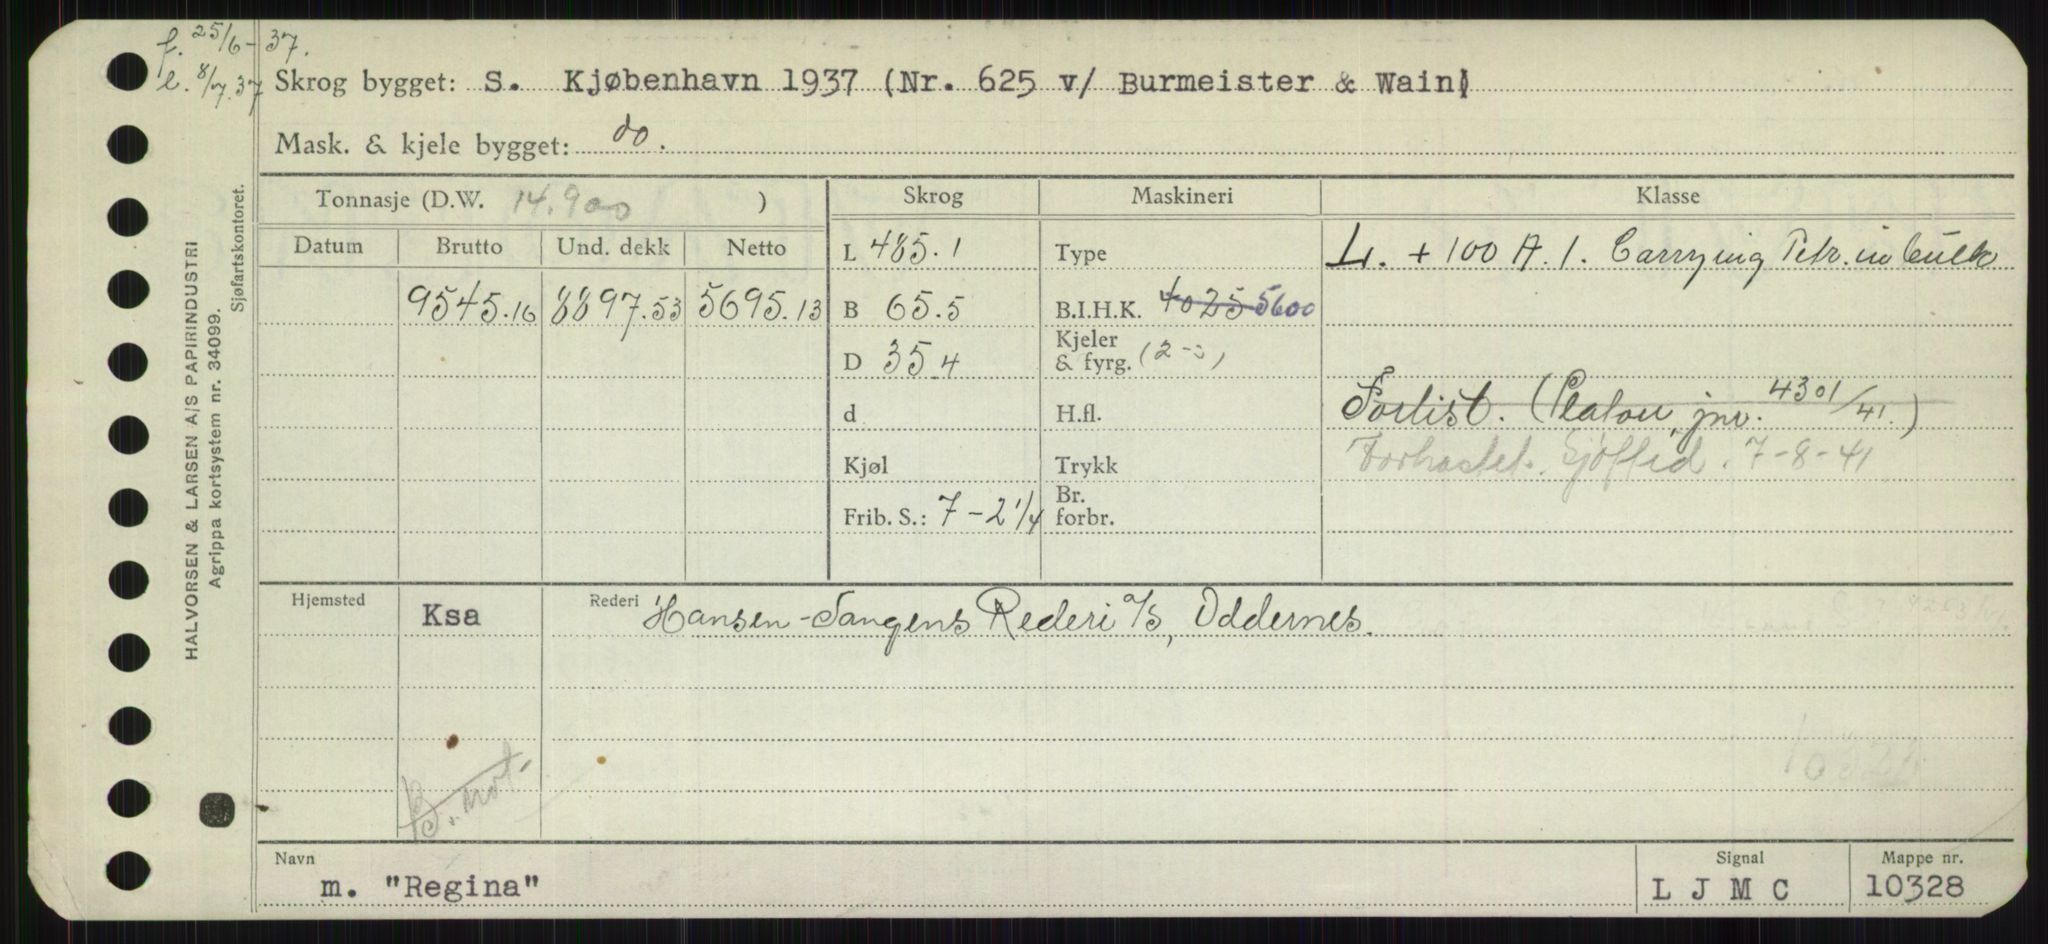 f. 25/6 - 37.
l. 8/7.37
Skrog bygget: S. Kjøbenhavn 1937 (Nr. 625 v/ Burmeister & Wain)
Mask. & kjele bygget: do.
Tonnasje (D.W. 14.900 ) Skrog Maskineri Klasse
Datum Brutto Und. dekk Netto
L 485.1 Type L. + 100 A.1. Carrying Petr. in bulk
9545.16 8897.53 5695.13 B 65.5 B.I.H.K. 4025 5600
D 35.4 Kjeler & fyrg. (2-
d H.fl. Forlist. (Platou, jnr. 4301/41.)
Kjøl Trykk Sjøffid. 7-8-41
Frib. S.: 7-2 1/4 Br. forbr.
Hjemsted Ksa Rederi Hansen-Tangens Rederi a/s, Oddernes.
B. not.
Navn Signal Mappe nr.
m. "Regina" L J M C 10328
HALVORSEN & LARSEN A/S PAPIRINDUSTRI
Agrippa kortsystem nr. 34099.
Sjøfartskontoret.